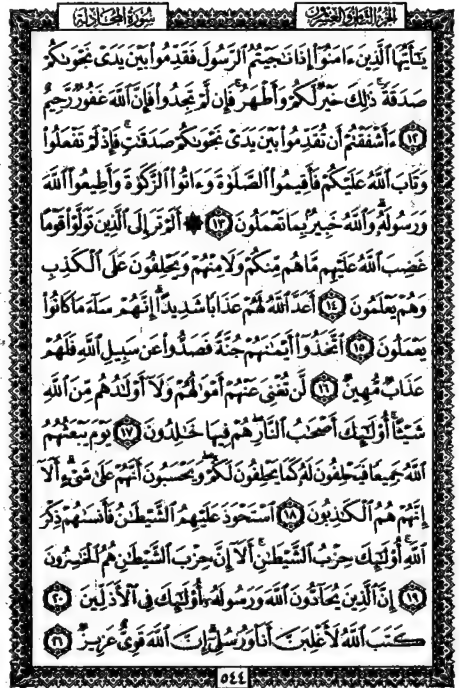 الجزء الثامن والعشرون
سُورَةُ المُجَادلَة
يَٰٓأَيُّهَا ٱلَّذِينَ ءَامَنُوٓا۟ إِذَا نَٰجَيْتُمُ ٱلرَّسُولَ فَقَدِّمُوا۟ بَيْنَ يَدَىْ نَجْوَىٰكُمْ
صَدَقَةً ۚ ذَٰلِكَ خَيْرٌ لَّكُمْ وَأَطْهَرُ ۚ فَإِن لَّمْ تَجِدُوا۟ فَإِنَّ ٱللَّهَ غَفُورٌ رَّحِيمٌ
١٢ ءَأَشْفَقْتُمْ أَن تُقَدِّمُوا۟ بَيْنَ يَدَىْ نَجْوَىٰكُمْ صَدَقَٰتٍ ۚ فَإِذْ لَمْ تَفْعَلُوا۟
وَتَابَ ٱللَّهُ عَلَيْكُمْ فَأَقِيمُوا۟ ٱلصَّلَوٰةَ وَءَاتُوا۟ ٱلزَّكَوٰةَ وَأَطِيعُوا۟ ٱللَّهَ
وَرَسُولَهُۥ ۚ وَٱللَّهُ خَبِيرٌۢ بِمَا تَعْمَلُونَ ١٣ ۞ أَلَمْ تَرَ إِلَى ٱلَّذِينَ تَوَلَّوْا۟ قَوْمًا
غَضِبَ ٱللَّهُ عَلَيْهِم مَّا هُم مِّنكُمْ وَلَا مِنْهُمْ وَيَحْلِفُونَ عَلَى ٱلْكَذِبِ
وَهُمْ يَعْلَمُونَ ١٤ أَعَدَّ ٱللَّهُ لَهُمْ عَذَابًا شَدِيدًا ۖ إِنَّهُمْ سَآءَ مَا كَانُوا۟
يَعْمَلُونَ ١٥ ٱتَّخَذُوٓا۟ أَيْمَٰنَهُمْ جُنَّةً فَصَدُّوا۟ عَن سَبِيلِ ٱللَّهِ فَلَهُمْ
عَذَابٌ مُّهِينٌ ١٦ لَّن تُغْنِىَ عَنْهُمْ أَمْوَٰلُهُمْ وَلَآ أَوْلَٰدُهُم مِّنَ ٱللَّهِ
شَيْـًٔا ۚ أُو۟لَٰٓئِكَ أَصْحَٰبُ ٱلنَّارِ ۖ هُمْ فِيهَا خَٰلِدُونَ ١٧ يَوْمَ يَبْعَثُهُمُ
ٱللَّهُ جَمِيعًا فَيَحْلِفُونَ لَهُۥ كَمَا يَحْلِفُونَ لَكُمْ ۖ وَيَحْسَبُونَ أَنَّهُمْ عَلَىٰ شَىْءٍ ۚ أَلَآ
إِنَّهُمْ هُمُ ٱلْكَٰذِبُونَ ١٨ ٱسْتَحْوَذَ عَلَيْهِمُ ٱلشَّيْطَٰنُ فَأَنسَىٰهُمْ ذِكْرَ
ٱللَّهِ ۚ أُو۟لَٰٓئِكَ حِزْبُ ٱلشَّيْطَٰنِ ۚ أَلَآ إِنَّ حِزْبَ ٱلشَّيْطَٰنِ هُمُ ٱلْخَٰسِرُونَ
١٩ إِنَّ ٱلَّذِينَ يُحَآدُّونَ ٱللَّهَ وَرَسُولَهُۥٓ أُو۟لَٰٓئِكَ فِى ٱلْأَذَلِّينَ ٢٠
كَتَبَ ٱللَّهُ لَأَغْلِبَنَّ أَنَا۠ وَرُسُلِىٓ ۚ إِنَّ ٱللَّهَ قَوِىٌّ عَزِيزٌ ٢١
٥٤٤